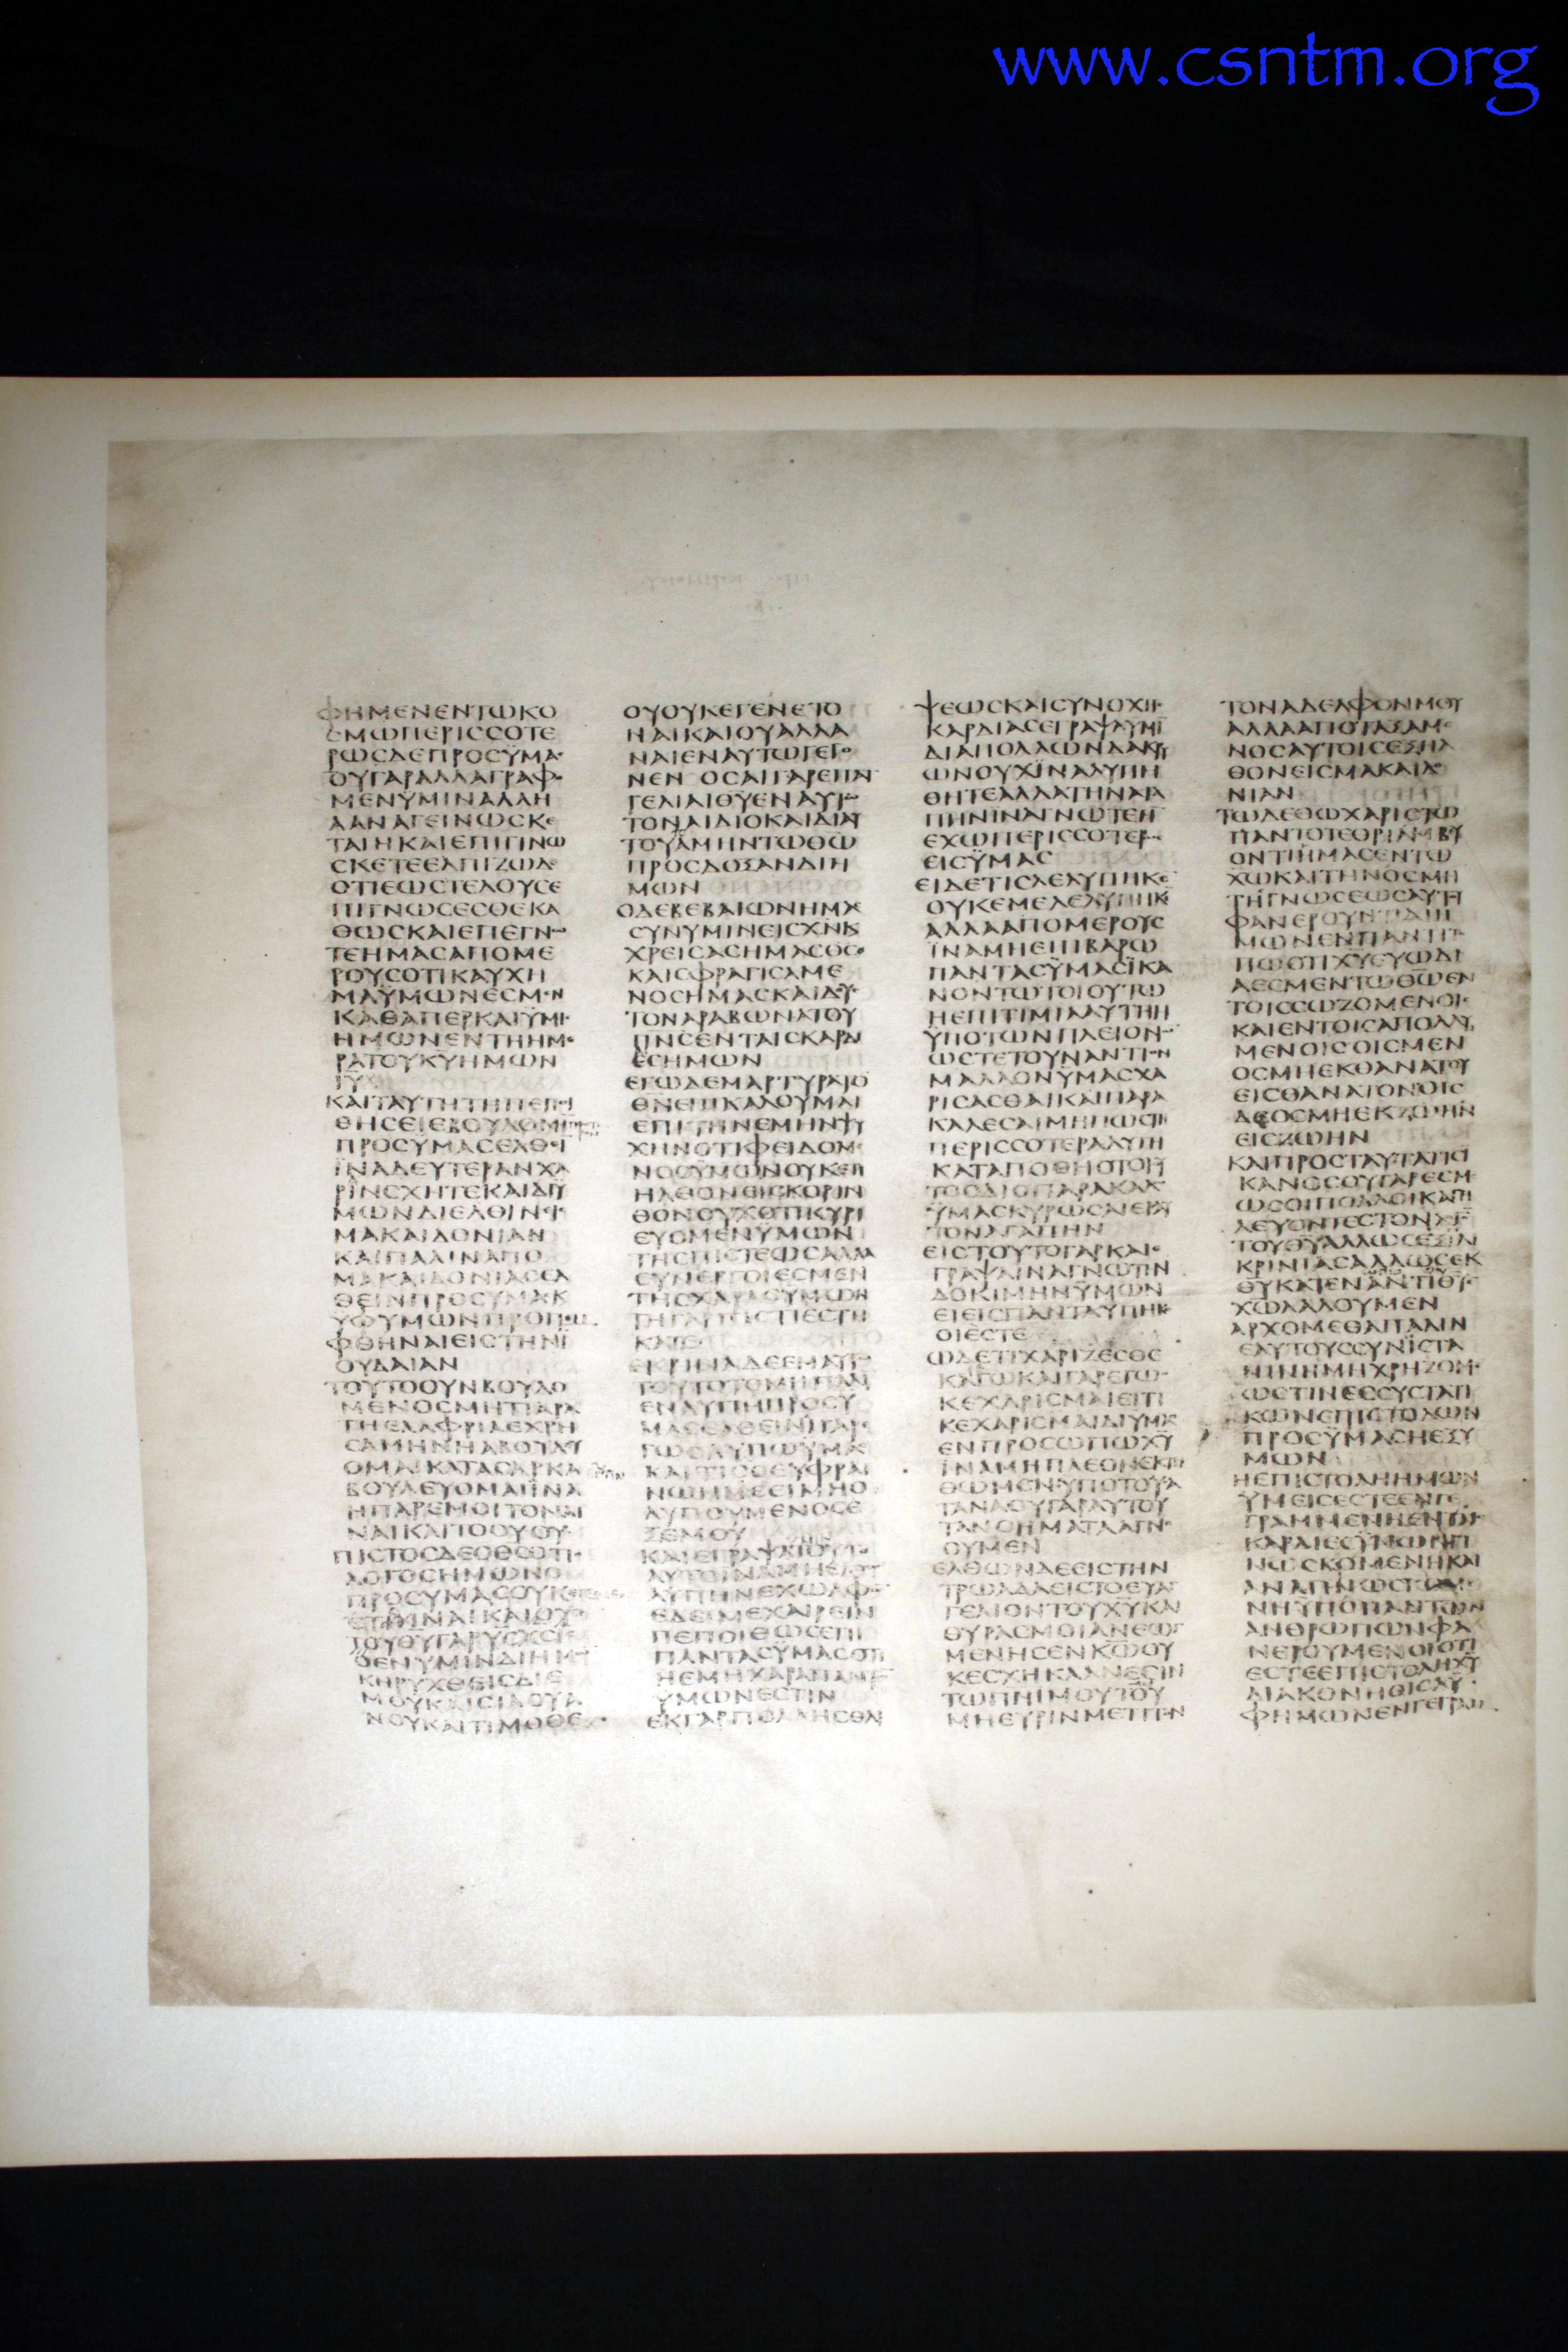 www.csntm.org
ΦΗΜΕΝΕΝΤΩΚΟ
ϹΜΩΠΕΡΙϹϹΟΤΕ
ΡΩϹΔΕΠΡΟϹΫΜΑ·
ΟΥΓΑΡΑΛΛΑΓΡΑΦΟ
ΜΕΝΫΜΙΝΑΛΛΗ
ΑΑΝΑΓΕΙΝΩϹΚΕ
ΤΑΙΗΚΑΙΕΠΙΓΙΝΩ
ϹΚΕΤΕΕΛΠΙΖΩΔΕ
ΟΤΙΕΩϹΤΕΛΟΥϹΕ
ΠΙΓΝΩϹΕϹΘΕΚΑ
ΘΩϹΚΑΙΕΠΕΓΝΩ
ΤΕΗΜΑϹΑΠΟΜΕ
ΡΟΥϹΟΤΙΚΑΥΧΗ
ΜΑΫΜΩΝΕϹΜΕΝ
ΚΑΘΑΠΕΡΚΑΙΥΜΙϹ
ΗΜΩΝΕΝΤΗΗΜΕ
ΡΑΤΟΥΚΥΗΜΩΝ
ΙΥ
ΚΑΙΤΑΥΤΗΤΗΠΕΠΙ
ΘΗϹΕΙΕΒΟΥΛΟΜΗ
ΠΡΟϹΥΜΑϹΕΛΘΙ
ΪΝΑΔΕΥΤΕΡΑΝΧΑ
ΡΙΝϹΧΗΤΕΚΑΙΔΙΫ
ΜΩΝΔΙΕΛΘΙΝΕΙϹ
ΜΑΚΑΙΔΟΝΙΑΝ
ΚΑΙΠΑΛΙΝΑΠΟ
ΜΑΚΑΙΔΟΝΙΑϹΕΛ
ΘΕΙΝΠΡΟϹΥΜΑΚ
ΥΦΥΜΩΝΠΡΟΠΕΜ
ΦΘΗΝΑΙΕΙϹΤΗΝΪ
ΟΥΔΑΙΑΝ
ΤΟΥΤΟΟΥΝΒΟΥΛΟ
ΜΕΝΟϹΜΗΤΙΑΡΑ
ΤΗΕΛΑΦΡΙΑΕΧΡΗ
ϹΑΜΗΝΗΑΒΟΥΛΕΥ
ΟΜΑΙΚΑΤΑϹΑΡΚΑ
ΒΟΥΛΕΥΟΜΑΙΪΝΑ
ΗΠΑΡΕΜΟΙΤΟΝΑΙ
ΝΑΙΚΑΙΤΟΟΥΟΥ
ΠΙϹΤΟϹΔΕΟΘϹΟΤΙ
ΛΟΓΟϹΗΜΩΝΟ
ΠΡΟϹΥΜΑϹΟΥΚ
ΕϹΤΙΝΝΑΙΚΑΙΟΥ
ΤΟΥΘΥΓΑΡΥϹΧϹΙϹ
ΟΕΝΥΜΙΝΔΙΗΜ
ΚΗΡΥΧΘΕΙϹΔΙΕ
ΜΟΥΚΑΙϹΙΛΟΥΑ
ΝΟΥΚΑΙΤΙΜΟΘΕ
ΟΥΟΥΚΕΓΕΝΕΤΟ
ΝΑΙΚΑΙΟΥΑΛΛΑ
ΝΑΙΕΝΑΥΤΩΓΕΓΟ
ΝΕΝ ΟϹΑΙΓΑΡΕΠΑΓ
ΓΕΛΙΑΙΘΥΕΝΑΥΤΩ
ΤΟΝΑΙΔΙΟΚΑΙΔΙΑΥ
ΤΟΥΑΜΗΝΤΩΘΩ
ΠΡΟϹΔΟΞΑΝΔΙΗ
ΜΩΝ
ΟΔΕΒΕΒΑΙΩΝΗΜΑϹ
ϹΥΝΥΜΙΝΕΙϹΧΝΚ
ΧΡΕΙϹΑϹΗΜΑϹΘϹΟ
ΚΑΙϹΦΡΑΓΙϹΑΜΕ
ΝΟϹΗΜΑϹΚΑΙΔΟΥϹ
ΤΟΝΑΡΑΒΩΝΑΤΟΥ
ΠΝϹΕΝΤΑΙϹΚΑΡΔΙ
ΕϹΗΜΩΝ
ΕΓΩΔΕΜΑΡΤΥΡΑΤΟ
ΘΝΕΠΙΚΑΛΟΥΜΑΙ
ΕΠΙΤΗΝΕΜΗΝΨΥ
ΧΗΝΟΤΙΦΕΙΔΟΜΕ
ΝΟϹΥΜΩΝΟΥΚΕΤΙ
ΗΛΘΟΝΕΙϹΚΟΡΙΝ
ΘΟΝΟΥΧΟΤΙΚΥΡΙ
ΕΥΟΜΕΝΫΜΩΝ
ΤΗϹΠΙϹΤΕΩϹΑΛΛΑ
ϹΥΝΕΡΓΟΙΕϹΜΕΝ
ΤΗϹΧΑΡΑϹΥΜΩΝ
ΤΗΓΑΡΠΙϹΤΙΕϹΤΗ
ΚΑΤΕ
ΕΚΡΙΝΑΔΕΕΜΑΥΤΩ
ΤΟΥΤΟΤΟΜΗΠΑΛΙ
ΕΝΛΥΠΗΠΡΟϹΥ
ΜΑϹΕΛΘΕΙΝΕΙΓΑΡΕ
ΓΩΛΥΠΩΥΜΑϹ
ΚΑΙΤΙϹΟΕΥΦΡΑΙ
ΝΩΝΜΕΕΙΜΗΟ
ΛΥΠΟΥΜΕΝΟϹΕ
ΞΕΜΟΥ
ΚΑΙΕΓΡΑΨΑΤΟΥΤΟ
ΑΥΤΟΪΝΑΜΗΕΛΘΩ
ΛΥΠΗΝΕΧΩΑΦΩ
ΕΔΕΙΜΕΧΑΙΡΕΙΝ
ΠΕΠΟΙΘΩϹΕΠΙ
ΠΑΝΤΑϹΫΜΑϹΟΤΙ
ΗΕΜΗΧΑΡΑΠΑΝΤΩ
ΥΜΩΝΕϹΤΙΝ
ΕΚΓΑΡΠΟΛΛΗϹΘΛΙ
ΨΕΩϹΚΑΙϹΥΝΟΧΗϹ
ΚΑΡΔΙΑϹΕΓΡΑΨΑΥΜΙ
ΔΙΑΠΟΛΛΩΝΔΑΚΡΥ
ΩΝΟΥΧΪΝΑΛΥΠΗ
ΘΗΤΕΑΛΛΑΤΗΝΑΓΑ
ΠΗΝΪΝΑΓΝΩΤΕΗ
ΕΧΩΠΕΡΙϹϹΟΤΕΡΩϹ
ΕΙϹΫΜΑϹ
ΕΙΔΕΤΙϹΛΕΛΥΠΗΚΕ
ΟΥΚΕΜΕΛΕΛΥΠΗΚΕ
ΑΛΛΑΑΠΟΜΕΡΟΥϹ
ΪΝΑΜΗΕΠΙΒΑΡΩ
ΠΑΝΤΑϹΫΜΑϹΪΚΑ
ΝΟΝΤΩΤΟΙΟΥΤΩ
ΗΕΠΙΤΙΜΙΑΑΥΤΗΗ
ΫΠΟΤΩΝΠΛΕΙΟΝΩ
ΩϹΤΕΤΟΥΝΑΝΤΙΟΝ
ΜΑΛΛΟΝΥΜΑϹΧΑ
ΡΙϹΑϹΘΑΙΚΑΙΠΑΡΑ
ΚΑΛΕϹΑΙΜΗΠΩϹΤΗ
ΠΕΡΙϹϹΟΤΕΡΑΛΥΠΗ
ΚΑΤΑΠΟΘΗΟΤΟΙΟΥ
ΤΟϹΔΙΟΠΑΡΑΚΑΛΩ
ΫΜΑϹΚΥΡΩϹΑΙΕΙϹΑΥ
ΤΟΝΑΓΑΠΗΝ
ΕΙϹΤΟΥΤΟΓΑΡΚΑΙΕ
ΓΡΑΨΑΪΝΑΓΝΩΤΗΝ
ΔΟΚΙΜΗΝΫΜΩΝ
ΕΙΕΙϹΠΑΝΤΑΥΠΗΚ
ΟΙΕϹΤΕ
ΩΔΕΤΙΧΑΡΙΖΕϹΘΕ
ΚΑΓΩΚΑΙΓΑΡΕΓΩΟ
ΚΕΧΑΡΙϹΜΑΙΕΙΤΙ
ΚΕΧΑΡΙϹΜΑΙΔΙΥΜΑϹ
ΕΝΠΡΟϹΩΠΩΧΥ
ΪΝΑΜΗΠΛΕΟΝΕΚΤΗ
ΘΩΜΕΝΫΠΟΤΟΥϹΑ
ΤΑΝΑΟΥΓΑΡΑΥΤΟΥ
ΤΑΝΟΗΜΑΤΑΑΓΝΟ
ΟΥΜΕΝ
ΕΛΘΩΝΔΕΕΙϹΤΗΝ
ΤΡΩΑΔΑΕΙϹΤΟΕΥΑΓ
ΓΕΛΙΟΝΤΟΥΧΥΚΑΙ
ΘΥΡΑϹΜΟΙΑΝΕΩΓ
ΜΕΝΗϹΕΝΚΩΟΥ
ΚΕϹΧΗΚΑΑΝΕϹΙΝ
ΤΩΠΝΙΜΟΥΤΟΥ
ΜΗΕΥΡΙΝΜΕΤΙΤΟΝ
ΤΟΝΑΔΕΛΦΟΝΜΟΥ
ΑΛΛΑΑΠΟΤΑΞΑΜΕ
ΝΟϹΑΥΤΟΙϹΕΞΗΛ
ΘΟΝΕΙϹΜΑΚΑΙΔΟ
ΝΙΑΝ
ΤΩΔΕΘΩΧΑΡΙϹΤΩ
ΠΑΝΤΟΤΕΘΡΙΑΜΒΕΥ
ΟΝΤΙΗΜΑϹΕΝΤΩ
ΧΩΚΑΙΤΗΝΟϹΜΗ
ΤΗϹΓΝΩϹΕΩϹΑΥΤΟΥ
ΦΑΝΕΡΟΥΝΤΙΔΙΗ
ΜΩΝΕΝΠΑΝΤΙΤΟ
ΠΩΟΤΙΧΥΕΥΩΔΙ
ΑΕϹΜΕΝΤΩΘΩΕΝ
ΤΟΙϹϹΩΖΟΜΕΝΟΙϹ
ΚΑΙΕΝΤΟΙϹΑΠΟΛΛΥ
ΜΕΝΟΙϹΟΙϹΜΕΝ
ΟϹΜΗΕΚΘΑΝΑΤΟΥ
ΕΙϹΘΑΝΑΤΟΝΟΙϹ
ΔΕΟϹΜΗΕΚΖΩΗϹ
ΕΙϹΖΩΗΝ
ΚΑΙΠΡΟϹΤΑΥΤΑΤΙϹΙ
ΚΑΝΟϹΟΥΓΑΡΕϹΜ
ΩϹΟΙΠΟΛΛΟΙΚΑΠΗ
ΛΕΥΟΝΤΕϹΤΟΝΛΟΓ
ΤΟΥΘΥΑΛΛΩϹΕΞΙΛΙ
ΚΡΙΝΙΑϹΑΛΛΩϹΕΚ
ΘΥΚΑΤΕΝΑΝΤΙΘΥΕ
ΧΩΛΑΛΟΥΜΕΝ
ΑΡΧΟΜΕΘΑΠΑΛΙΝ
ΕΑΥΤΟΥϹϹΥΝΪϹΤΑ
ΝΙΝΗΜΗΧΡΗΖΟΜΕ
ΩϹΤΙΝΕϹϹΥϹΤΑΤΙ
ΚΩΝΕΠΙϹΤΟΛΩΝ
ΠΡΟϹΫΜΑϹΗΕΞΥ
ΜΩΝ
ΗΕΠΙϹΤΟΛΗΗΜΩΝ
ΥΜΕΙϹΕϹΤΕΕΝΓΕ
ΓΡΑΜΜΕΝΗΕΝΤΑΙϹ
ΚΑΡΔΙΕϹΫΜΩΝΓΙ
ΝΩϹΚΟΜΕΝΗΚΑΙ
ΑΝΑΓΙΝΩϹΚΟΜΕ
ΝΗΫΠΟΠΑΝΤΩΝ
ΑΝΘΡΩΠΩΝΦΑ
ΝΕΡΟΥΜΕΝΟΙΟΤΙ
ΕϹΤΕΕΠΙϹΤΟΛΗΧΥ
ΔΙΑΚΟΝΗΘΙϹΑΫ
ΦΗΜΩΝΕΝΓΕΓΡΑΜ